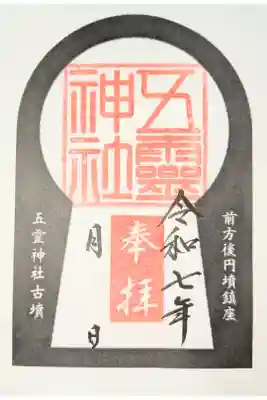 前方後円墳鎮座
五靈
神社
令和七年
奉拝
月 日
五霊神社古墳